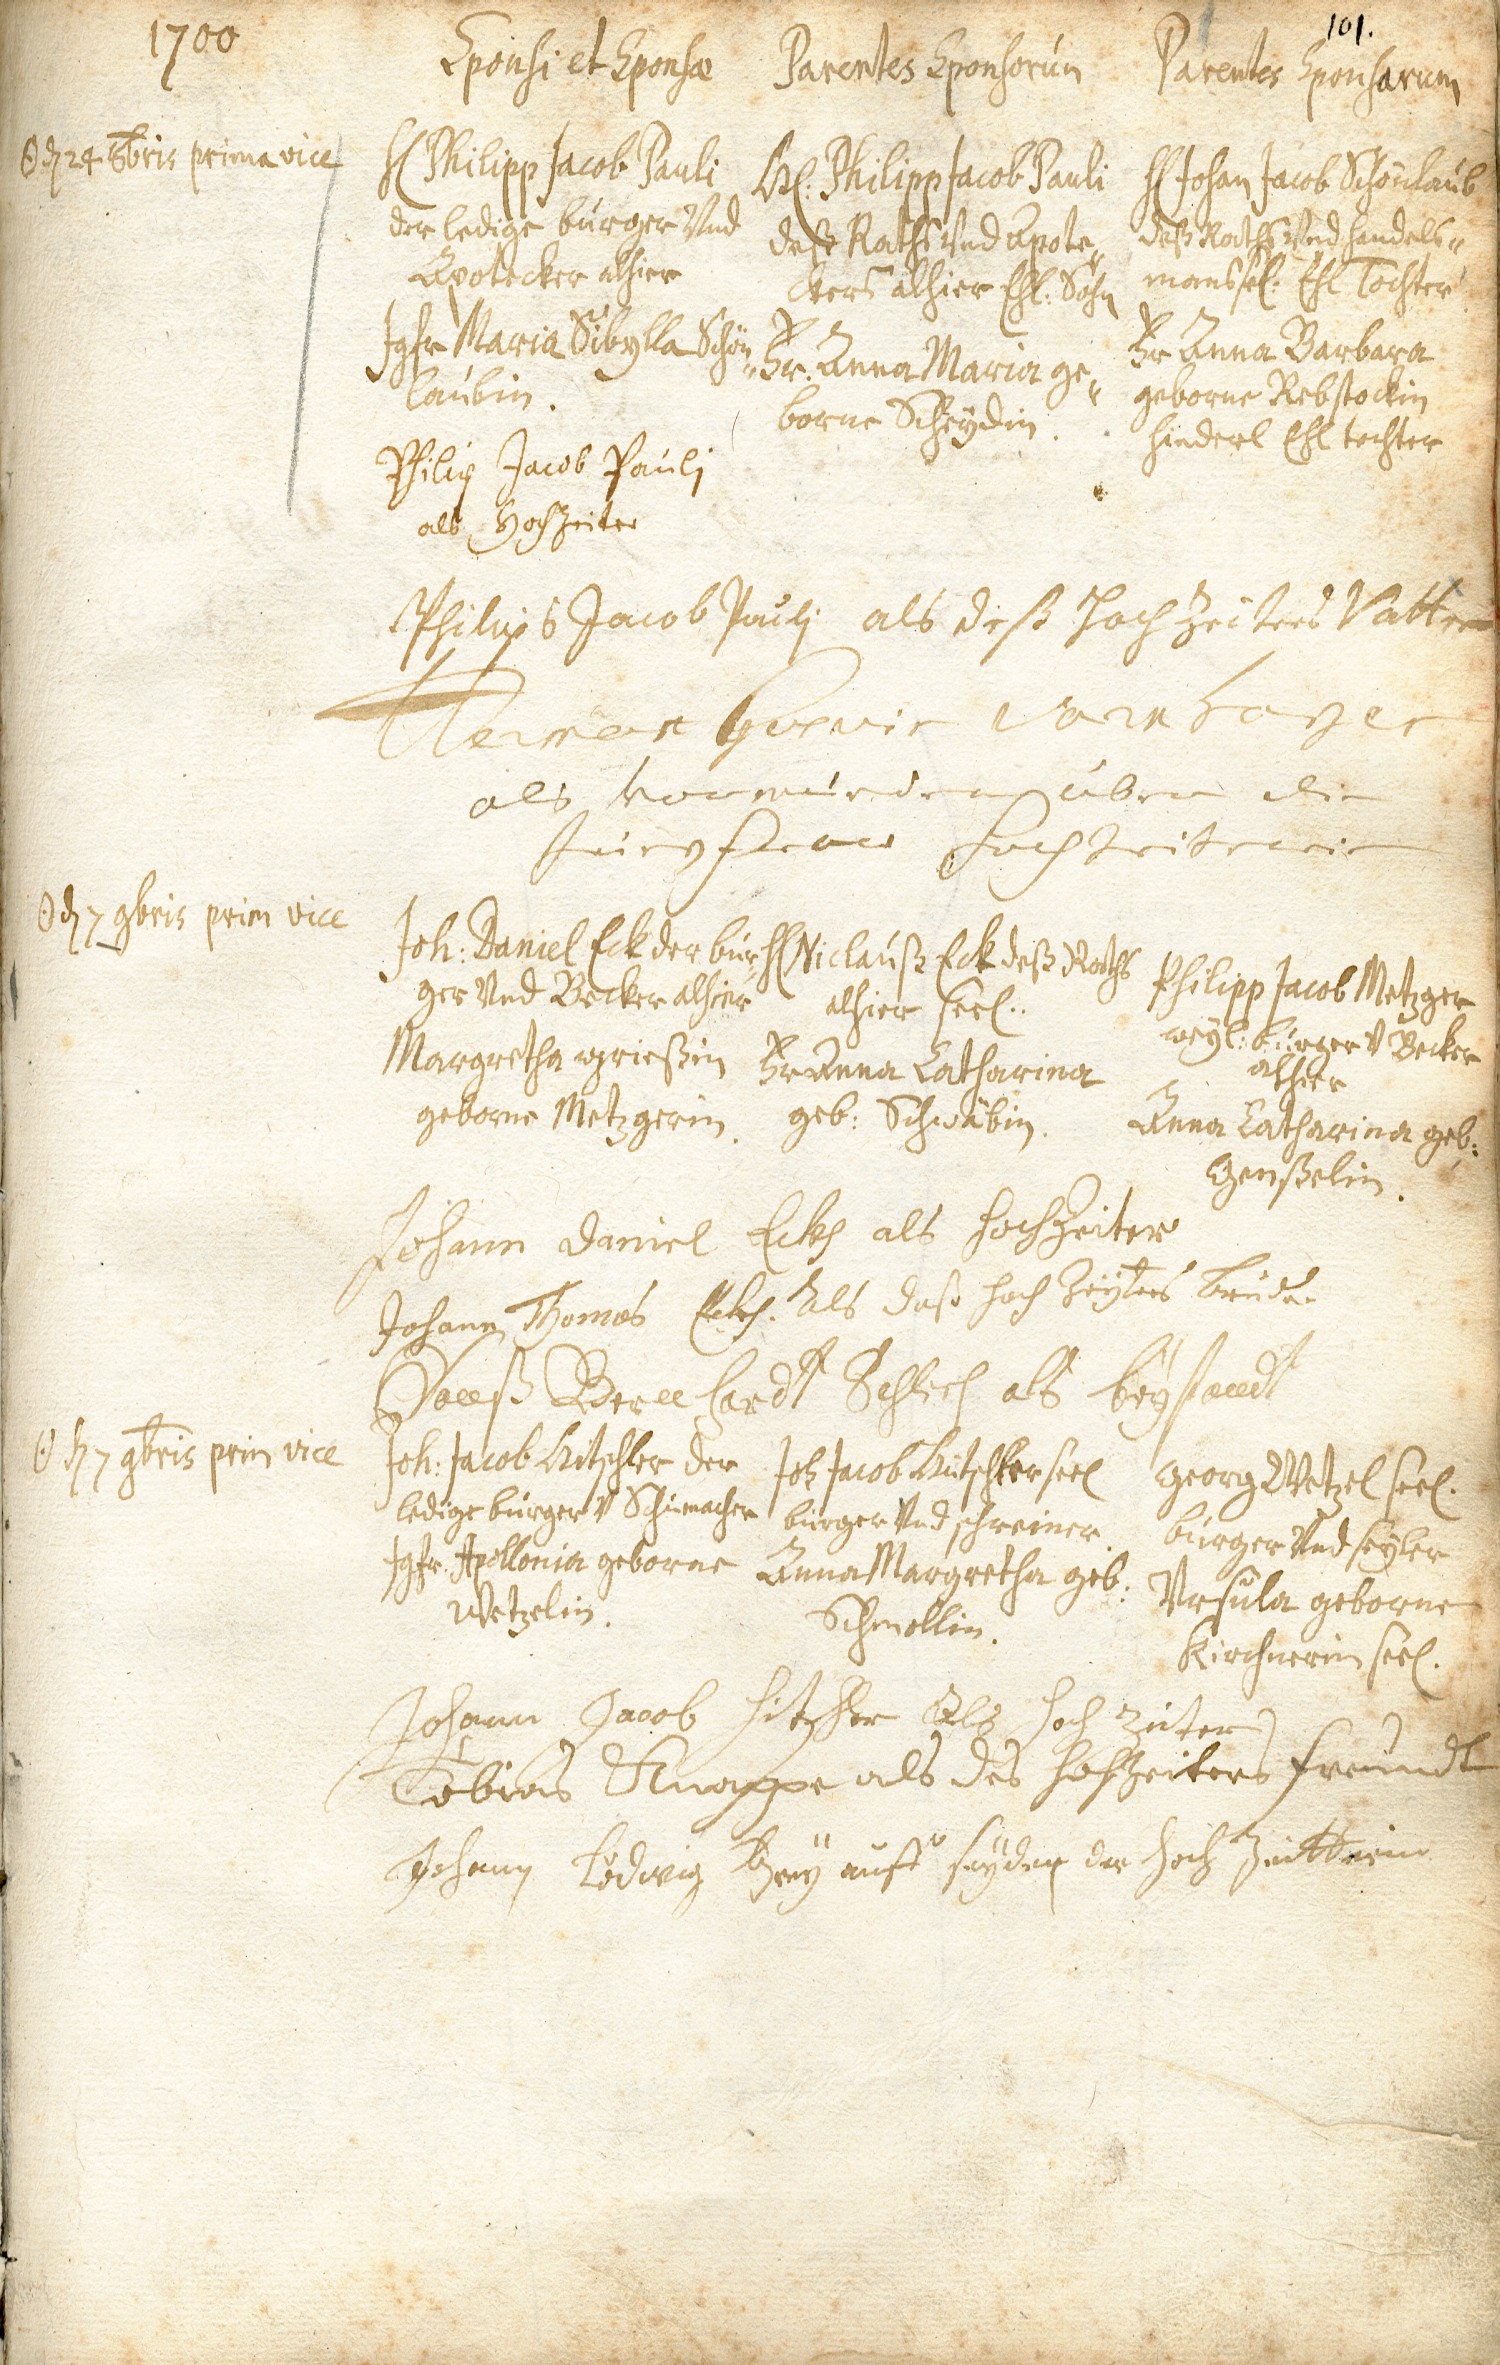 101.
1700
Sponsi et Sponsæ
Parentes Sponsorum
Parentes Sponsarum
24 8bris prima vice
H Philipp Jacob Pauli
der ledige burger Vnd
Apotecker alhier
Jgfr Maria Sibylla Schön
laubin.
Philipp Jacob Pauli
deß Raths Vnd Apote
kers alhier Ehl: Sohn
Fr. Anna Maria ge
borne Scheydin.
H Johan Jacob Schönlaub
deß Raths Vnd handels
mans sel: Ehl Tochter
Fr Anna Barbara
geborne Rebstockin
hinderl Ehl tochter
Philip Jacob Pauli
als Hochzeiter
Philips Jacob Pauli als deß Hochzeiters Vatter
als vormunder über die
Jungfraw Hochzeiterin
7 9bris prim vice
Joh: Daniel Eck der bur
ger Vnd Becker alhier
Margretha
geborne Metzgerin.
H Niclauß Eck deß Raths
alhier seel.
Fr Anna Catharina
geb: Schwäbin.
Philipp Jacob Metzger
weyl: burger V Becker
alhier
Anna Catharina geb:
Genßelin.
Johann Daniel Eck als Hochzeiter
Johann Thomas Eck. als deß hoch Zeyters bruder
Hanß Bernhardt Schlich als beystandt
7 9bris prim vice
Joh: Jacob Hitschler der
ledige burger V Schumacher
Jgfr. Apollonia geborne
Wetzelin.
Joh Jacob Hitschler seel
burger Vnd schreiner.
Anna Margretha geb:
Schmollin.
Georg Wetzel seel.
burger Vnd seyler
Vrsula geborne
Kirchnerin seel.
Johann Jacob Hitschler Als hoch zeiter
Tobias Knappe als des Hochzeiters freundt
Johann Lodwig auff seyden der hoch Zeitterin